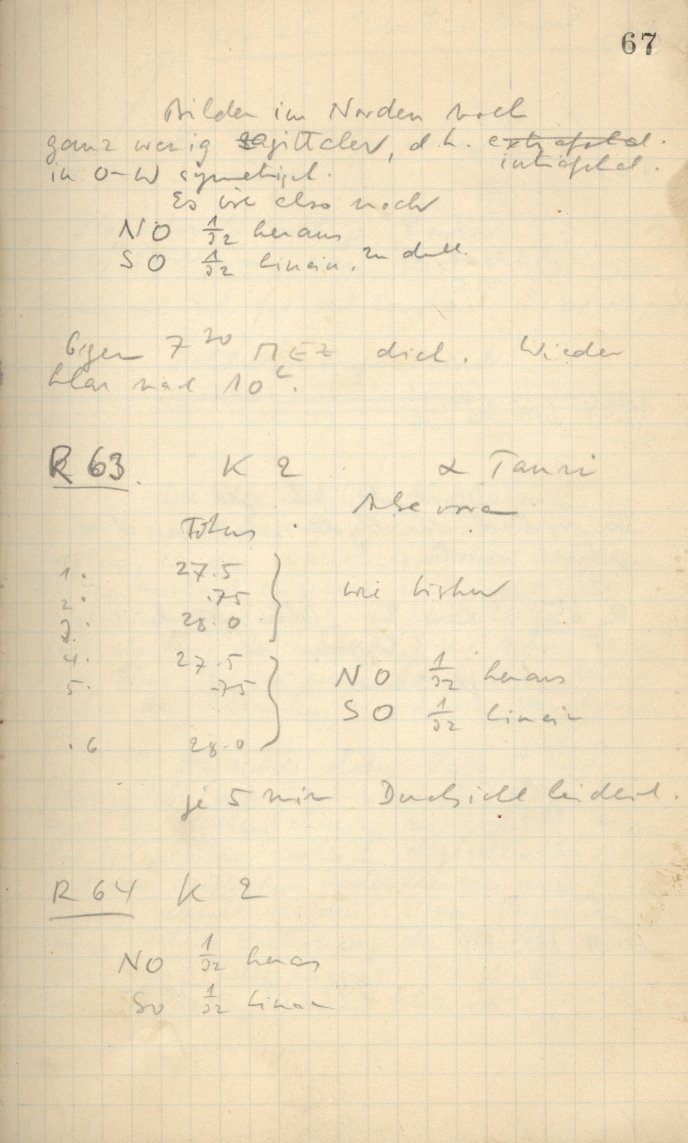 67
Bilder im Norden noch
ganz wenig sagittaler, d.h. extrafokal.
intrafokal.
in O-W symetrisch.
Es wie also noch
NO 1/32 heraus
SO 1/32 hinein. zu dull
Gegen 7 20 MEZ dicht. Wieder
klar nach 10 h.
R 63. K 2 α Tauri
Fokus.
1. 27.5
2. .75 wie bisher
3. 28.0
4. 27.5 NO 1/32 heraus
5. .75 SO 1/32 hinein
.6 28.0
je 5 min Durchsicht leidlich.
R 64 K 2
NO 1/32 heraus
SO 1/32 hinein